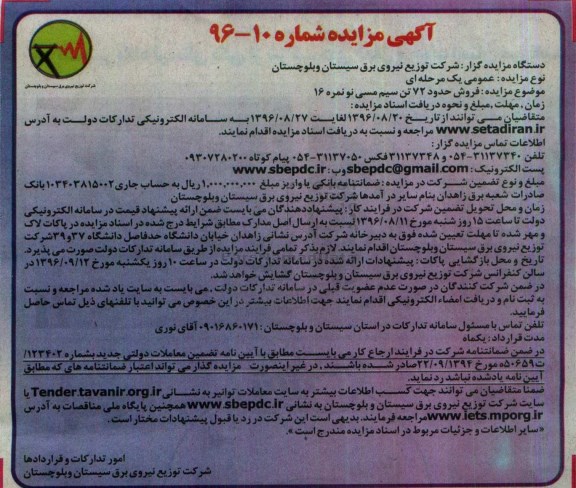 آگهی مزایده شماره ۱۰-۹۶
شرکت توزیع نیروی برق سیستان وبلوچستان
دستگاه مزایده گزار: شرکت توزیع نیروی برق سیستان وبلوچستان
نوع مزایده: عمومی یک مرحله ای
موضوع مزایده: فروش حدود ۷۲ تن سیم مسی نو نمره ۱۶
زمان، مهلت، مبلغ و نحوه دریافت اسناد مزایده:
متقاضیان می توانند از تاریخ ۱۳۹۶/۰۸/۲۰ لغایت ۱۳۹۶/۰۸/۲۷ به سامانه الکترونیکی تدارکات دولت به آدرس
www.setadiran.ir مراجعه و نسبت به دریافت اسناد مزایده اقدام نمایند.
اطلاعات تماس مزایده گزار:
تلفن ۳۱۱۳۷۳۴۰-۰۵۴ و ۳۱۱۳۷۳۴۸ فکس ۳۱۱۳۷۰۵۰-۰۵۴ پیام کوتاه ۰۹۳۰۷۳۸۰۲۰۰
پست الکترونیک: sbepdc@gmail.com وب: www.sbepdc.ir
مبلغ و نوع تضمین شرکت در مزایده: ضمانتنامه بانکی یا واریز مبلغ ۱,۰۰۰,۰۰۰,۰۰۰ ریال به حساب جاری ۱۰۳۴۰۳۸۱۵۰۰۲ بانک
صادرات شعبه برق زاهدان بنام سایر در آمدها شرکت توزیع نیروی برق سیستان وبلوچستان
زمان و محل تحویل تضمین شرکت در فرایند کار: پیشنهاددهندگان می بایست ضمن ارائه پیشنهاد قیمت در سامانه الکترونیکی
دولت تا ساعت ۱۵ روز شنبه مورخ ۱۳۹۶/۰۸/۱۱ نسبت به ارسال اصل مدارک مطابق شرایط درج شده در اسناد مزایده در پاکات لاک
و مهر شده تا مهلت تعیین شده فوق به دبیرخانه شرکت آدرس نشانی زاهدان خیابان دانشگاه حدفاصل دانشگاه ۳۷ و ۳۹ شرکت
توزیع نیروی برق سیستان وبلوچستان اقدام نمایند. لازم بذکر تمامی فرایند مزایده از طریق سامانه تدارکات دولت صورت می پذیرد.
تاریخ و محل بازگشایی پاکات: پیشنهادات ارائه شده در سامانه تدارکات دولت در ساعت ۱۰ روز یکشنبه مورخ ۱۳۹۶/۰۹/۱۲ در
سالن کنفرانس شرکت توزیع نیروی برق سیستان و بلوچستان گشایش خواهد شد.
در ضمن شرکت کنندگان در صورت عدم عضویت قبلی در سامانه تدارکات دولت، می بایست به سایت یاد شده مراجعه و نسبت
به ثبت نام و دریافت امضاء الکترونیکی اقدام نمایند جهت اطلاعات بیشتر در این خصوص می توانید با تلفنهای ذیل تماس حاصل
فرمایید.
تلفن تماس با مسئول سامانه تدارکات در استان سیستان و بلوچستان: ۰۹۰۱۶۸۶۰۱۷۱ آقای نوری
مدت قرارداد: یکماه
در ضمن ضمانتنامه شرکت در فرایند ارجاع کار می بایست مطابق با آیین نامه تضمین معاملات دولتی جدید بشماره ۱۲۳۴۰۲/
ت۵۰۶۵۹ه مورخ ۲۲/۰۹/۱۳۹۴ صادر شده باشند. در غیر اینصورت مزایده گذار می تواند اعتبار ضمانتنامه های که مطابق
آیین نامه یادشده نباشد رد نماید.
ضمنا متقاضیان می توانند جهت کسب اطلاعات بیشتر به سایت معاملات توانیر به نشانی Tender.tavanir.org.ir یا
سایت شرکت توزیع نیروی برق سیستان و بلوچستان به نشانی www.sbepdc.ir همچنین پایگاه ملی مناقصات به آدرس
www.iets.mporg.ir مراجعه فرمایند. بدیهی است این شرکت در رد یا قبول پیشنهادات مختار است.
«سایر اطلاعات و جزئیات مربوط در اسناد مزایده مندرج است».
امور تدارکات و قراردادها
شرکت توزیع نیروی برق سیستان وبلوچستان